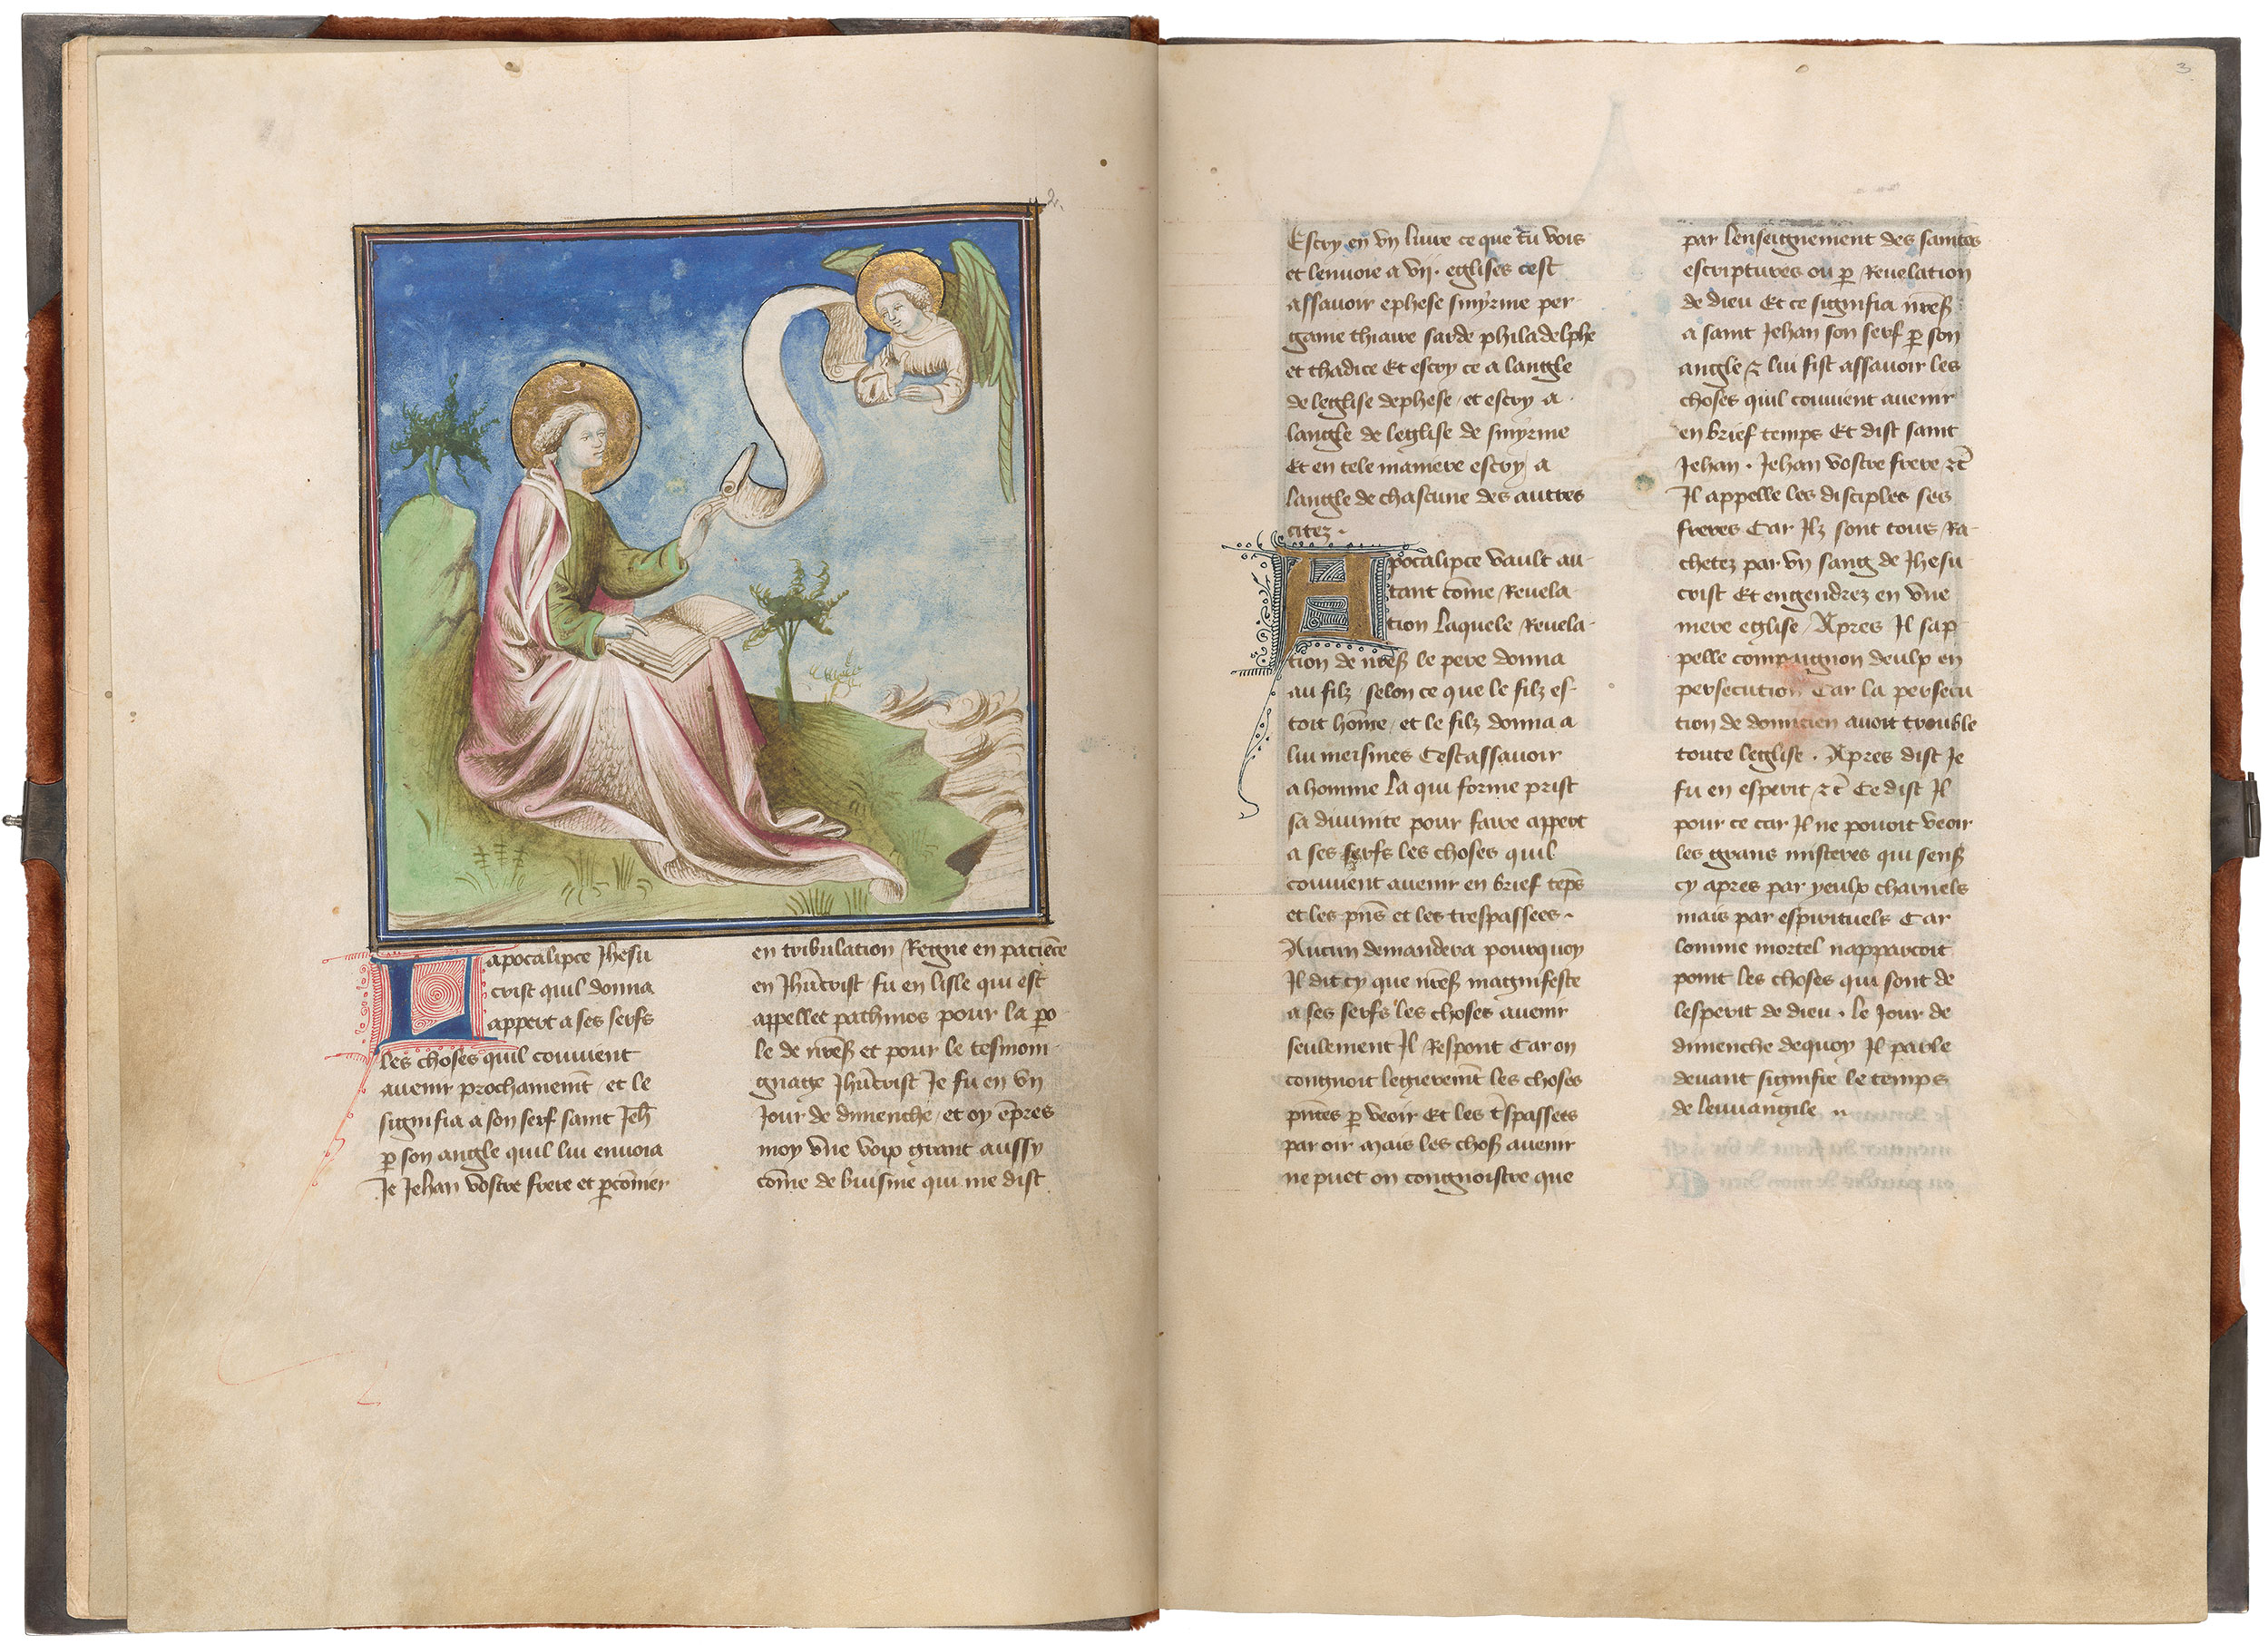 2
Lapocalipce Jhesu
crist quil donna
appert a ses serfs
les choses quil convient
avenir prochainemt̄ et le
signifia a son serf saint Jeh̄
p̱ son angle quil lui envoia
Je Jehan vostre frere et p̱cōnier
en tribulation Regne en paciēce
en Jhūcrist fu en lisle qui est
appellee pathmos pour la p̱o
le de nreß et pour le tesmoin
gnage Jhūcrist Je fu en vn
Jour de dimenche et oy ēpres
moy vn̄e voix grant aussy
cōme de buisine qui me dist
3
Escry en vn livre ce que tu vois
et lenvoie a vij. eglises cest
assavoir ephese smyrme per
game thiaire sarde philadelphe
et thadice Et escry ce a langle
de leglise dephese et escry a
langle de leglise de smyrme
Et en tele maniere escry a
langle de chascune des autres
citez .
Apocalipce vault au
tant cōme Revela
tion Laquele Revela
tion de nreß le pere donna
au filz selon ce que le filz es
toit hōme et le filz donna a
lui meismes Cest assavoir
a homme La qui forme prist
sa divinite pour faire appert
a ses serfs les choses quil
convient avenir en brief tēps
et les pn̄s et les trespassees .
Aucun demandera pourquoy
Il dit cy que nreß magnifeste
a ses serfs les choses avenir
seulement Il Respont Car on
congnoit legierem̄t les choses
pn̄tes p̱ veoir Et les t̄spassees
par oir Mais les choß avenir
ne puet on congnoistre que
par lenseignement des saintes
escriptures ou p̱ Revelation
de dieu Et ce signifia nreß
a saint Jehan son serf p̱ son
angle ⁊ lui fist assavoir les
choses quil convient avenir
en brief temps Et dist saint
Jehan . Jehan vostre frere ⁊c̄
Il appelle les disciples ses
freres Car Ilz sont tous Ra
chetez par vn sang de Jhesu
crist Et engendrez en vn̄e
mere eglise Apres Il sap
pelle compaignon deulx en
persecution Car la persecu
tion de domicien avoit trouble
toute leglise . Apres dist Je
fu en esperit ⁊c̄ Ce dist Il
pour ce car Il ne povoit veoir
les grans misteres qui senß
cy apres par yeulx charnels
mais par espirituels Car
lomme mortel napparcoit
point les choses qui sont de
lesperit de dieu . Le Jour de
dimenche dequoy Il parle
devant signifie le temps
de leuvangile